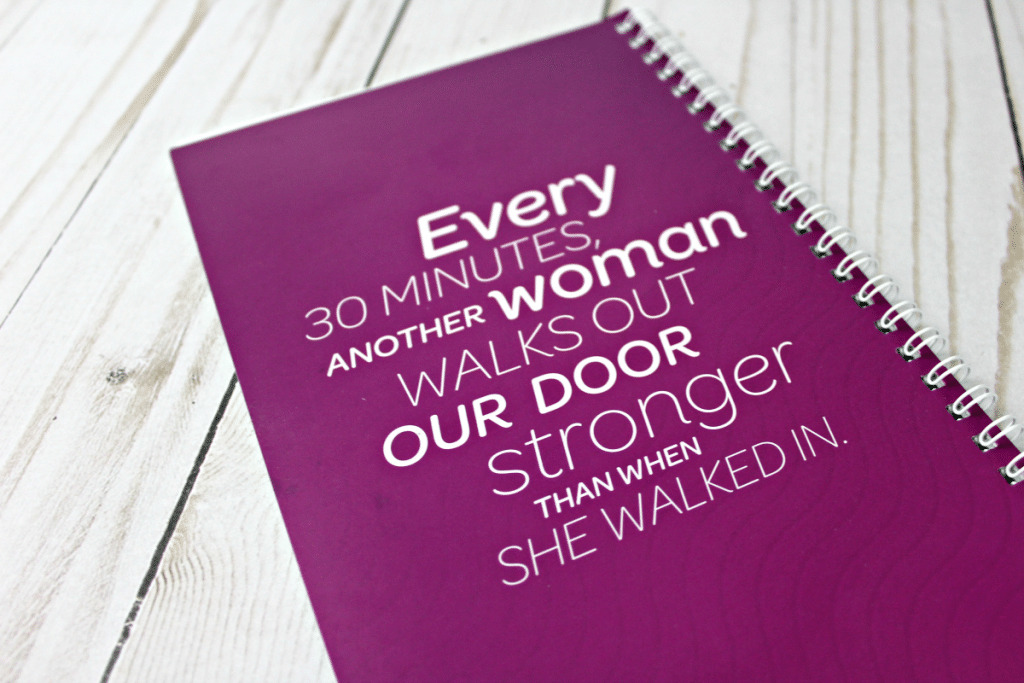 Every
30 MINUTES,
ANOTHER woman
WALKS OUT
OUR DOOR
stronger
THAN WHEN
SHE WALKED IN.